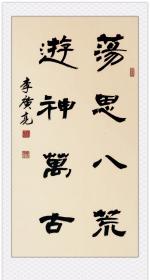 蕩思八荒
遊神萬古
李廣亮